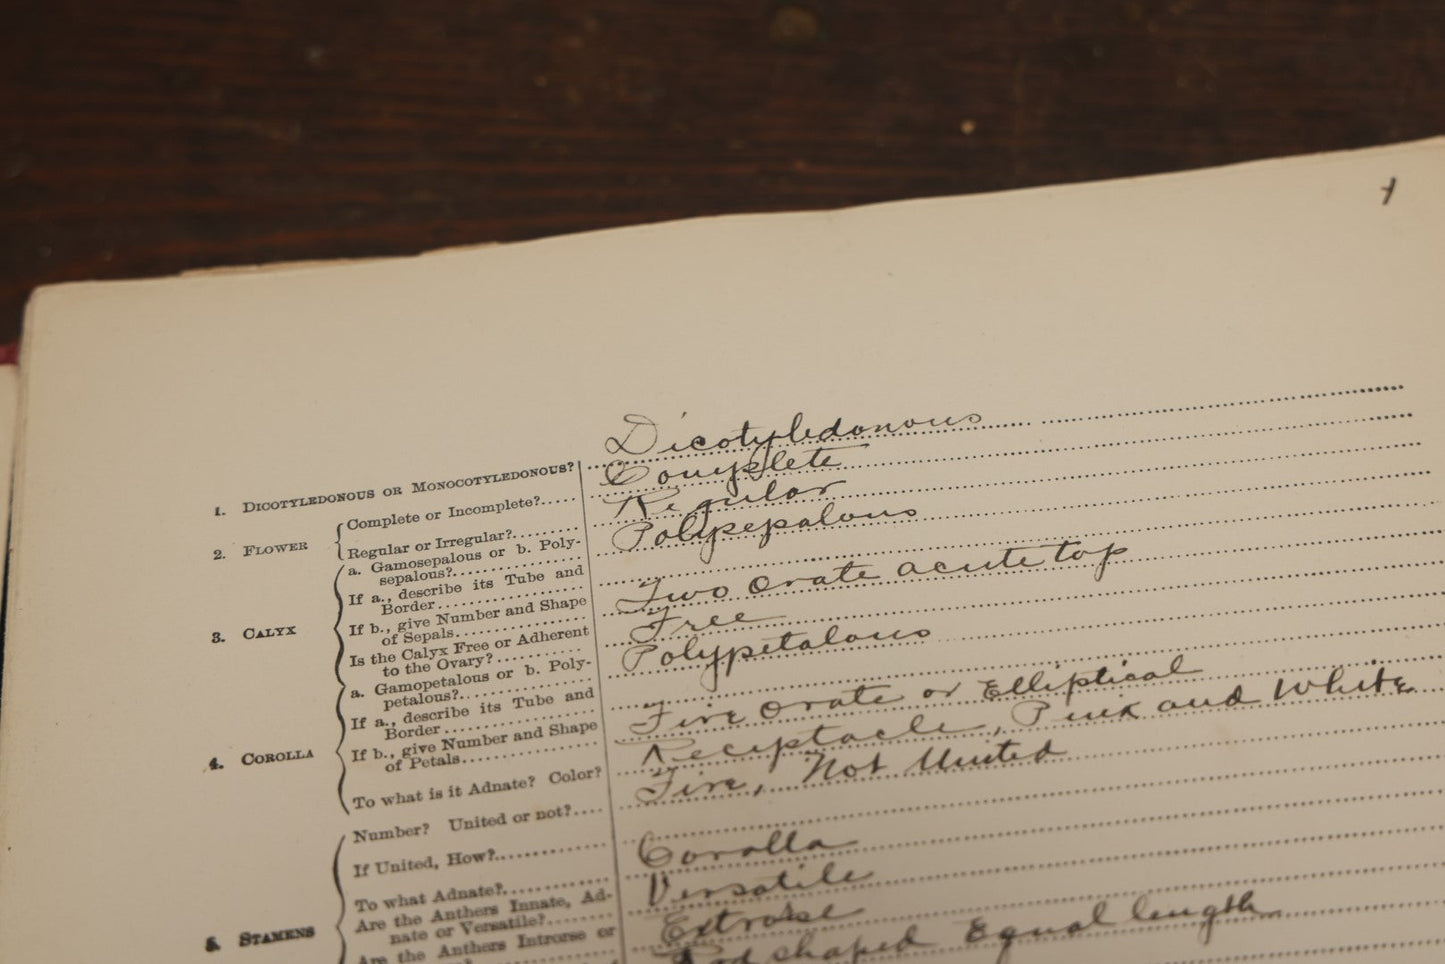 1. DICOTYLEDONOUS OR MONOCOTYLEDONOUS? Dicotyledonous
2. FLOWER
Complete or Incomplete?..... Complete
Regular or Irregular?........ Regular
3. CALYX
a. Gamosepalous or b. Poly-
sepalous?.................... Polypepalous
If a., describe its Tube and
Border....................
If b., give Number and Shape
of Sepals.................... Two Ovate acute top
Is the Calyx Free or Adherent
to the Ovary?............ Free
4. COROLLA
a. Gamopetalous or b. Poly-
petalous?.................... Polypetalous
If a., describe its Tube and
Border....................
If b., give Number and Shape
of Petals.................... Five Ovate or Elliptical
To what is it Adnate? Color? Receptacle, Pink and White
5. STAMENS
Number? United or not?.... Five, Not United
If United, How?................
To what Adnate?................ Corolla
Are the Anthers Innate, Ad-
nate or Versatile?............ Versatile
Are the Anthers Introrse or Extrorse
Rod shaped Equal length